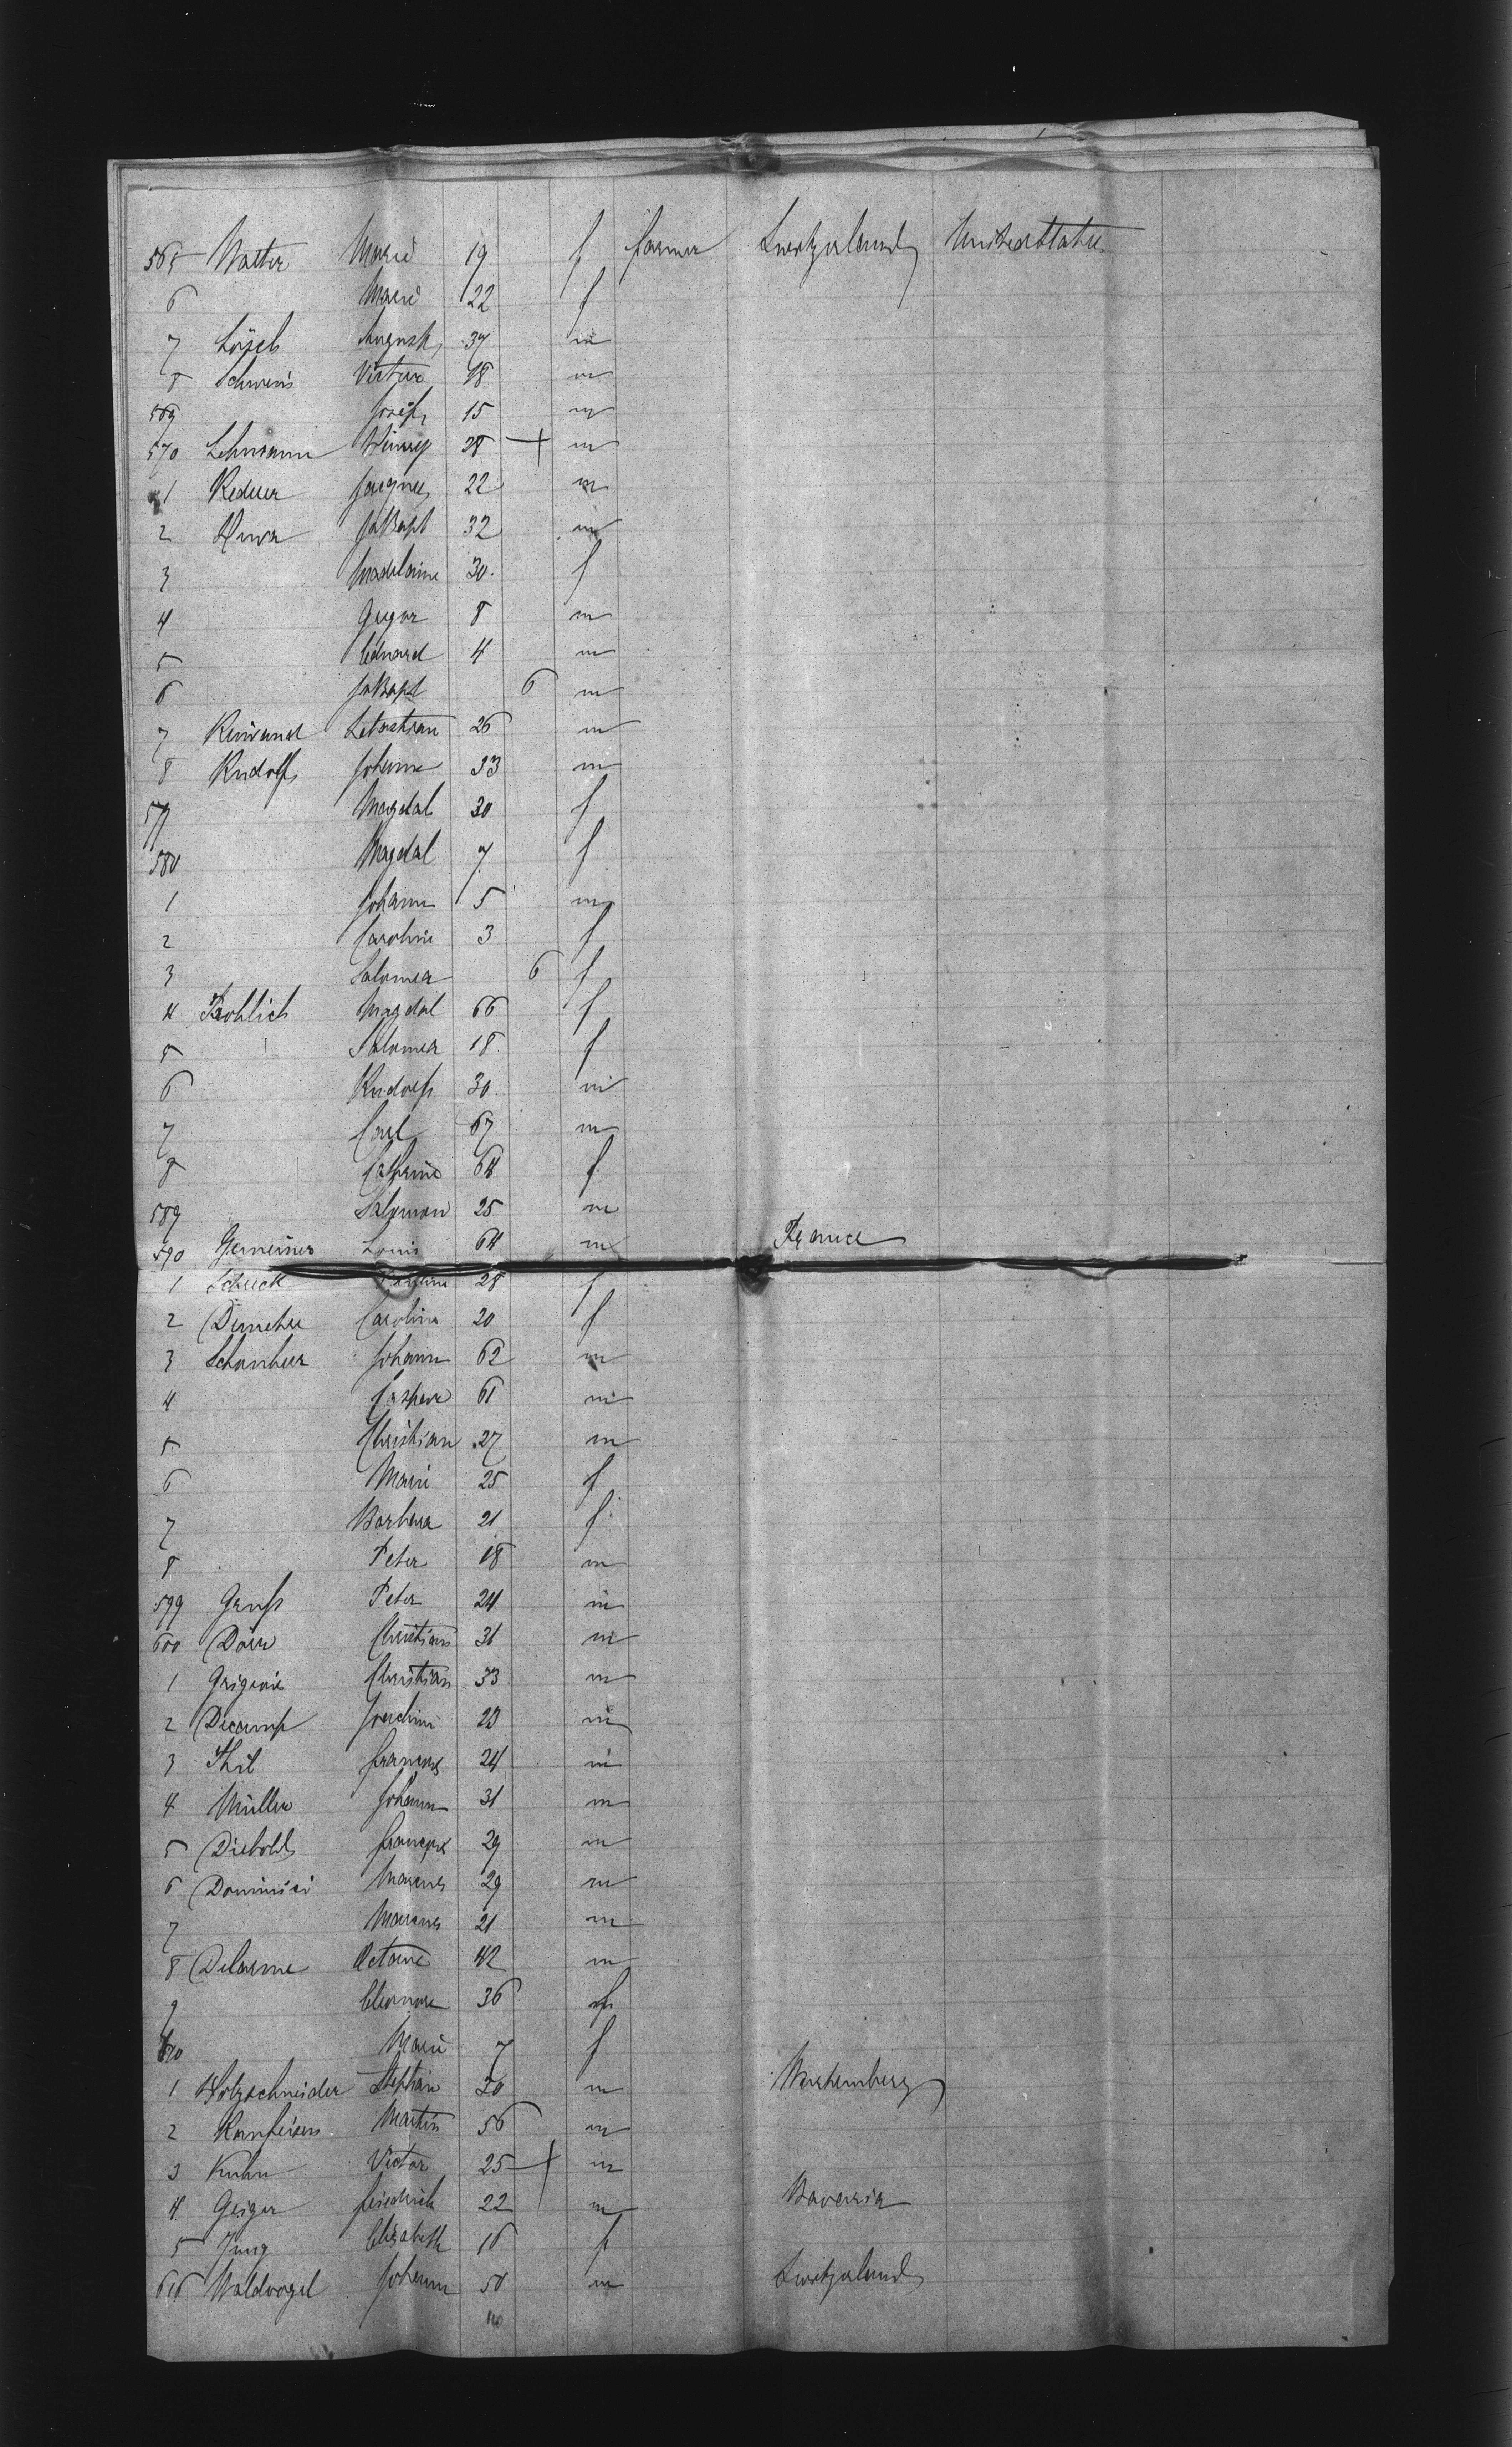 565 Walter Marie 19 f farmer Switzerland United States
6 Marie 22 f
7 Lösch August 37 m
8 Schweis Victor 48 m
569 Josef 15 m
570 Lehmann Henry 28 + m
1 Jacques 22 m
2 Huva JnBapt 32 m
3 Madelaine 30. f
4 Gregor 8 m
5 Eduard 4 m
6 JnBapt 6 m
7 Sebastian 26 m
8 Rudolf Johann 33 m
579 Magdal 30 f
580 Magdal 7 f
1 Johann 5 m
2 Caroline 3 f
3 Salomea 6 f
4 Frohlich Magdal 66 f
5 Salomea 18 f
6 Rudolf 30. m
7 Carl 67 m
8 Catherine 64 f
589 Salomon 25 m
590 Gemeiner Louis 64 m France
1 Scheck 28 f
2 Demeher Caroline 20 f
3 Schanheer Johann 62 m
4 Caspar 61 m
5 Christian 27 m
6 Marie 25 f
7 Barbara 21 f
8 Peter 18 m
599 Peter 24 m
600 Dörr Christian 31 m
1 Christian 33 m
2 Decamp Joachim 23 m
3 Thil François 24 m
4 Müller Johann 31 m
5 Diebold François 29 m
6 Dominici 29 m
7 21 m
8 Delarme Octave 42 m
9 Eleonore 36 f
610 Marie 7 f
1 Holzschneider Stephan 30 m Wurtemberg
2 Martin 56 m
3 Kuhn Victor 25 + m
4 Geiger Friedrich 22 m Bavaria
5 Jung Elisabeth 16 f
616 Waldvogel Johann 50 m Switzerland